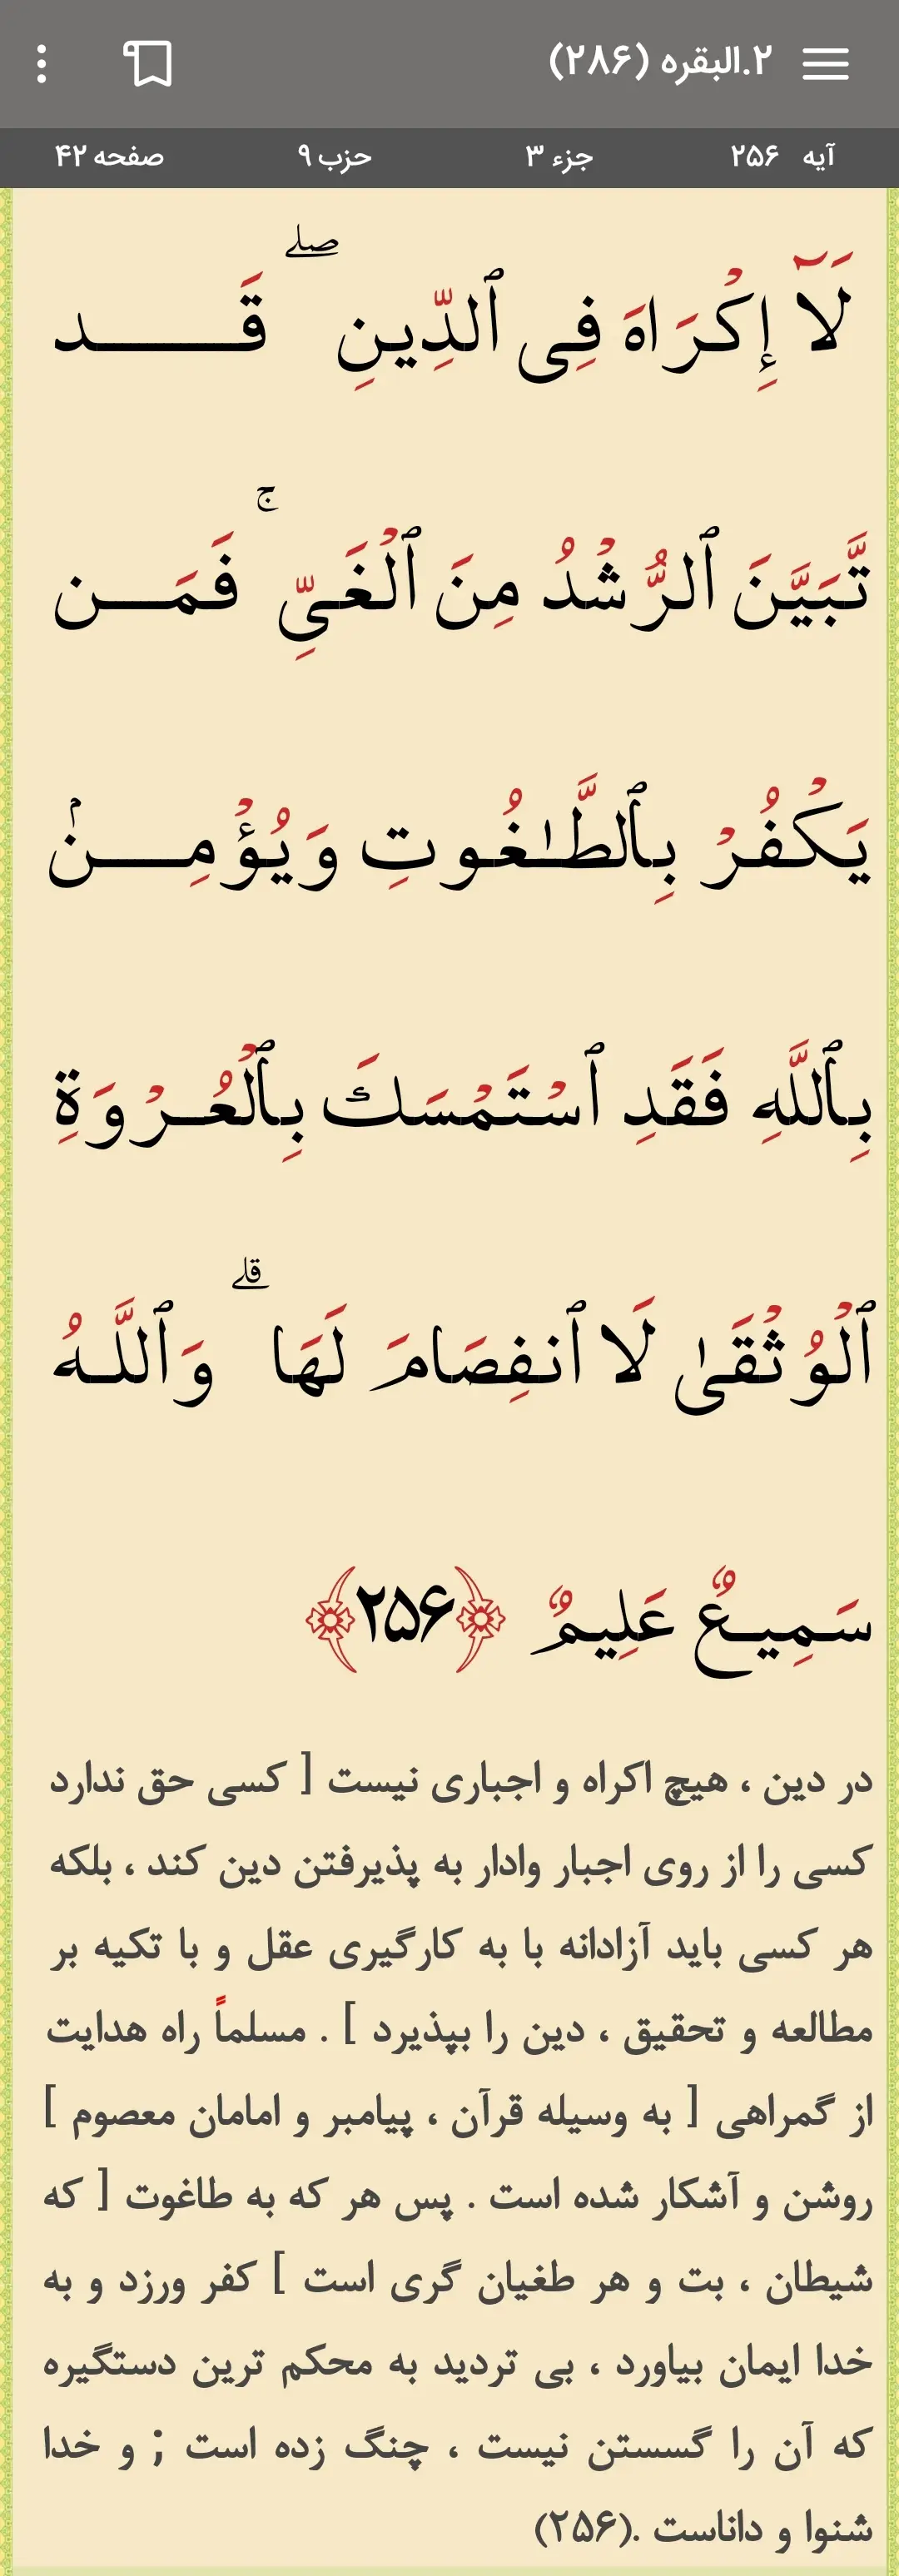 ۲.البقره (۲۸۶)
آیه ۲۵۶ جزء ۳ حزب ۹ صفحه ۴۲
لَآ إِكْرَاهَ فِى ٱلدِّينِ ۖ قَد
تَّبَيَّنَ ٱلرُّشْدُ مِنَ ٱلْغَىِّ ۚ فَمَن
يَكْفُرْ بِٱلطَّٰغُوتِ وَيُؤْمِنۢ
بِٱللَّهِ فَقَدِ ٱسْتَمْسَكَ بِٱلْعُرْوَةِ
ٱلْوُثْقَىٰ لَا ٱنفِصَامَ لَهَا ۗ وَٱللَّهُ
سَمِيعٌ عَلِيمٌ ﴿۲۵۶﴾
در دین ، هیچ اکراه و اجباری نیست [ کسی حق ندارد
کسی را از روی اجبار وادار به پذیرفتن دین کند ، بلکه
هر کسی باید آزادانه با به کارگیری عقل و با تکیه بر
مطالعه و تحقیق ، دین را بپذیرد ] . مسلماً راه هدایت
از گمراهی [ به وسیله قرآن ، پیامبر و امامان معصوم ]
روشن و آشکار شده است . پس هر که به طاغوت [ که
شیطان ، بت و هر طغیان گری است ] کفر ورزد و به
خدا ایمان بیاورد ، بی تردید به محکم ترین دستگیره
که آن را گسستن نیست ، چنگ زده است ; و خدا
شنوا و داناست .(۲۵۶)